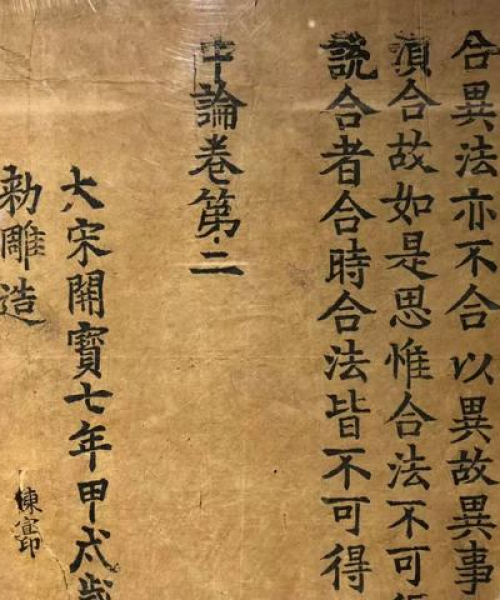 合異法亦不合以異故異事
須合故如是思惟合法不可得
説合者合時合法皆不可得
中論卷第二
大宋開寶七年甲戌歲
勅雕造
陳宣印